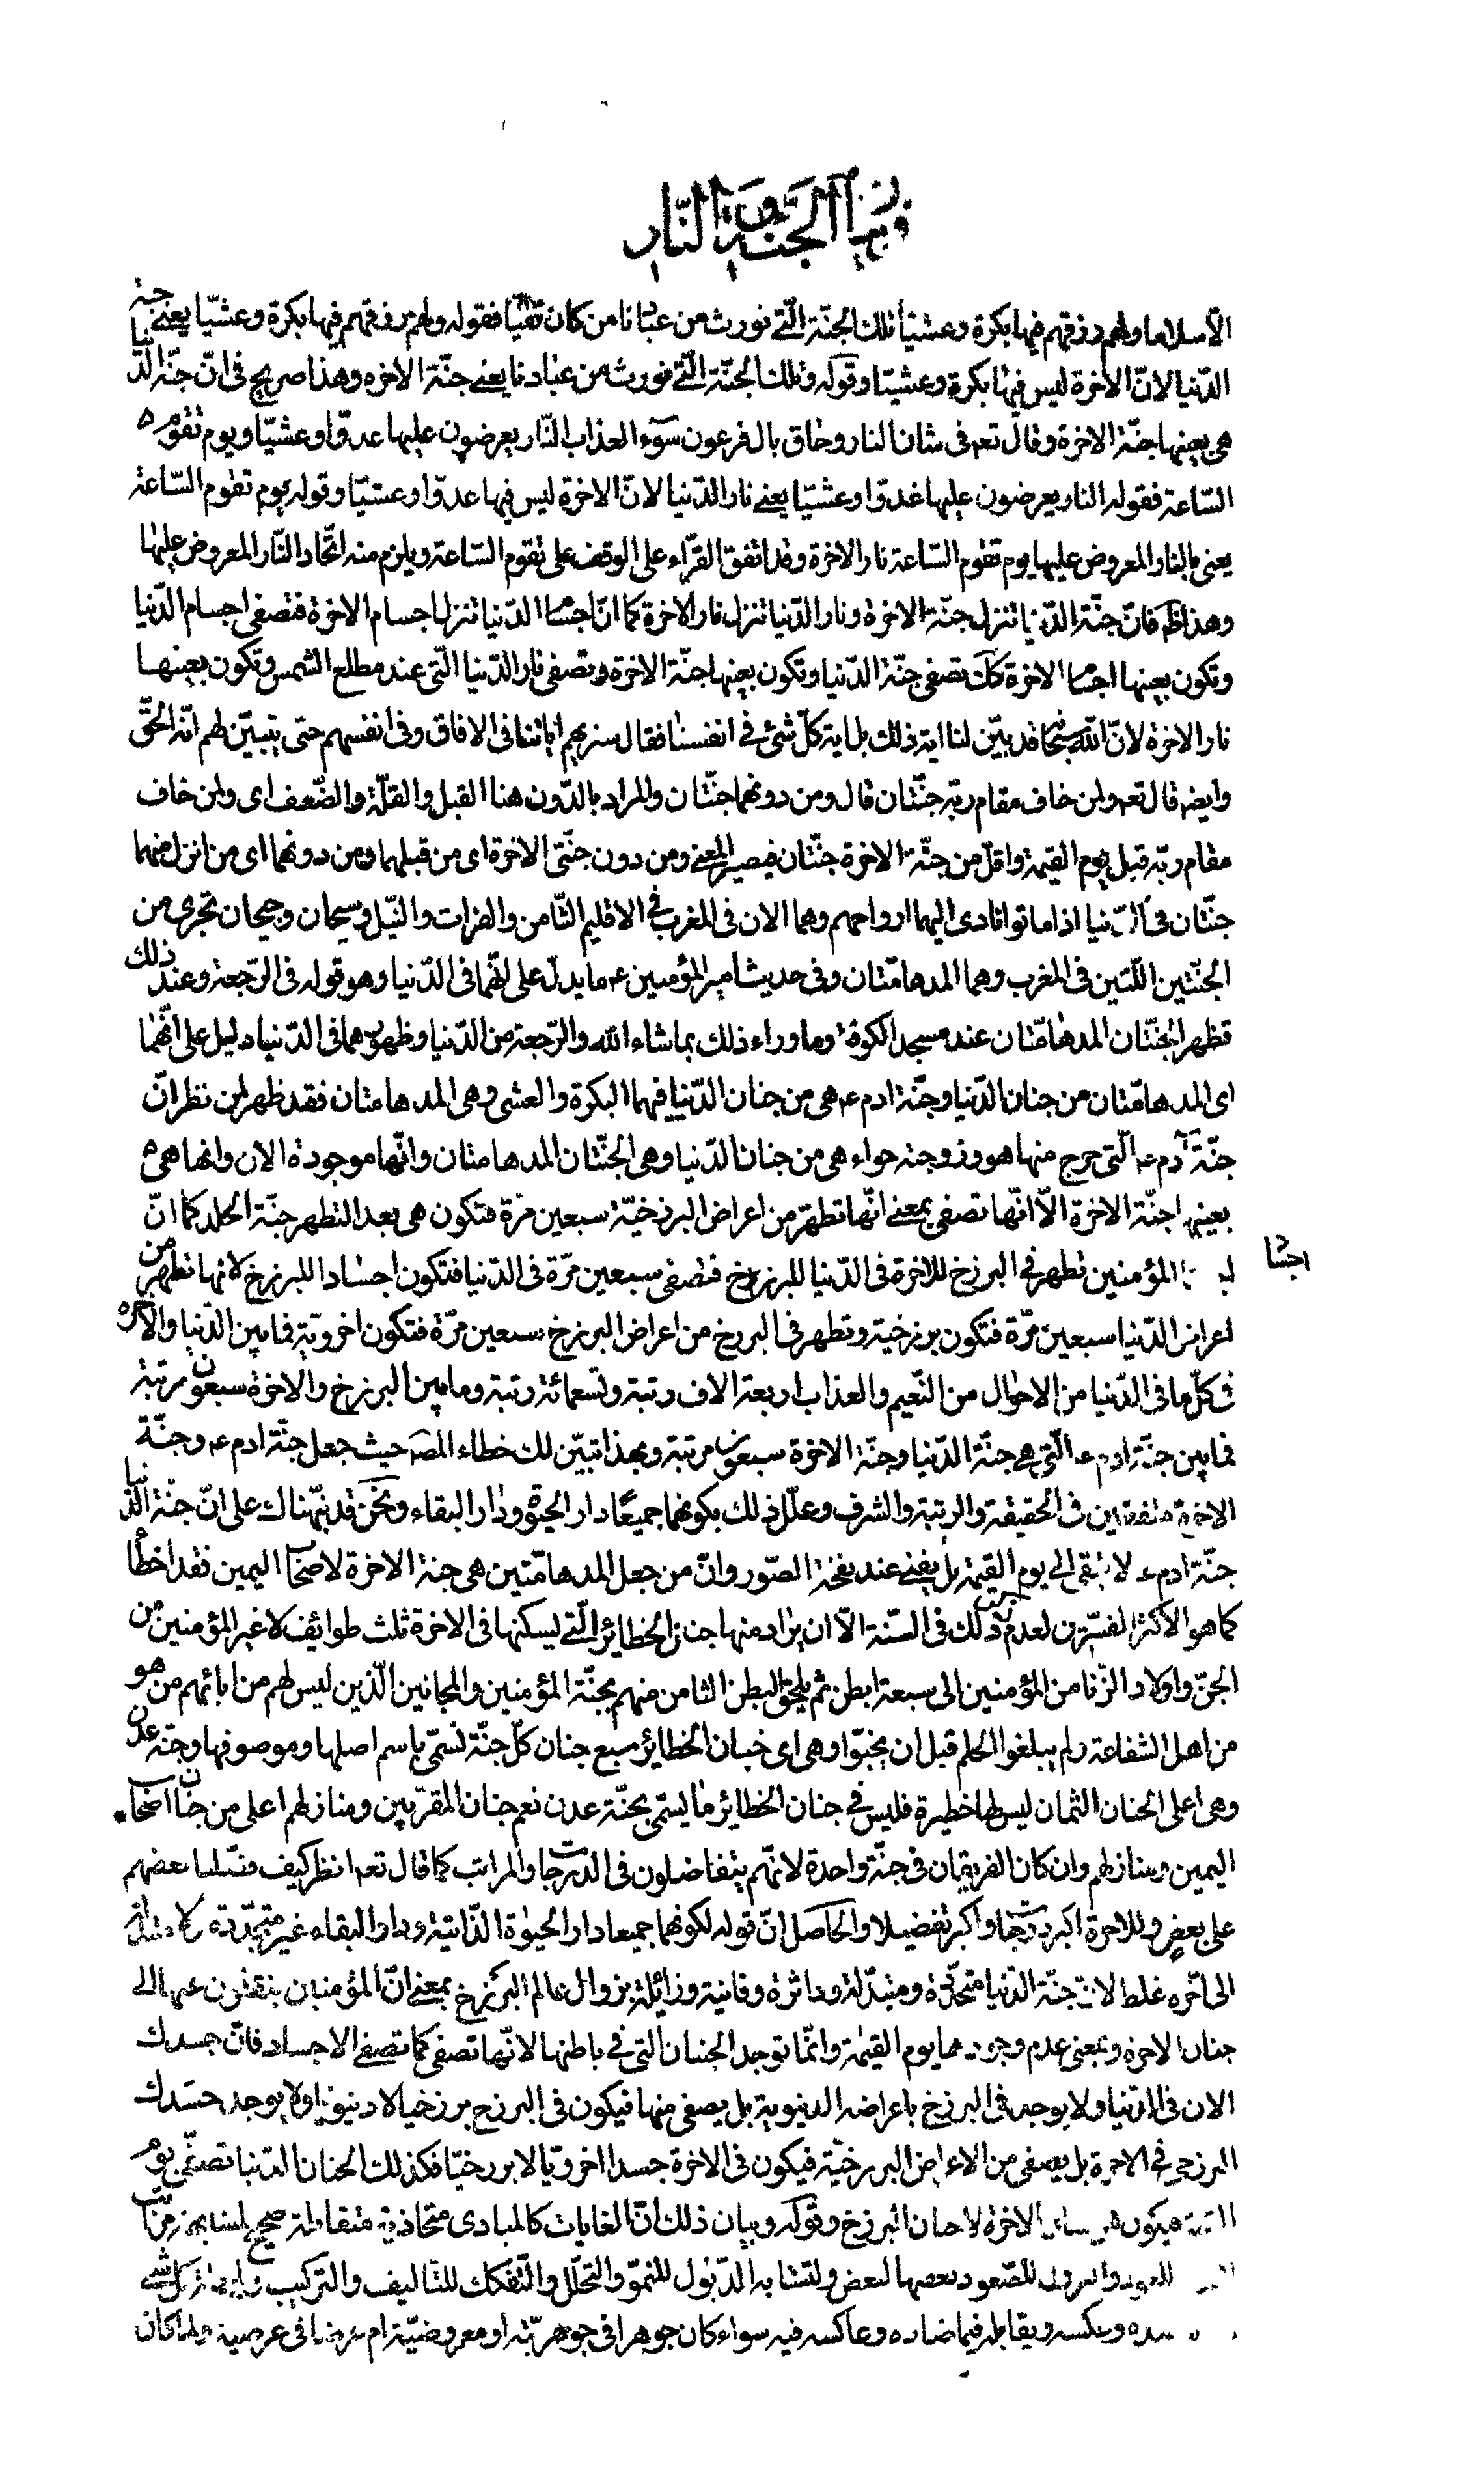 في بيان الجنة و النار
الّا سلاما ولهم رزقهم فيها بكرة وعشيّا تلك الجنّة الّتي نورث من عبادنا من كان تقيّا فقوله ولهم رزقهم فيها بكرة وعشيّا يعني جنة
الدّنيا لانّ الاخرة ليس فيها بكرة وعشيّا وقوله وتلك الجنّة الّتي نورث من عبادنا يعني جنّة الاخره وهذا صريح في انّ جنّة الدّنيا
هي بعينها جنّة الاخرة وقال تعه في شان النار وحاق بال فرعون سوء العذاب النّار يعرضون عليها غدوّا وعشيّا ويوم تقوم
السّاعة فقوله النار يعرضون عليها غدوّا وعشيّا يعني نار الدّنيا لانّ الاخرة ليس فيها غدوّا وعشيّا وقوله يوم تقوم السّاعة
يعني بالنار المعروض عليها يوم تقوم السّاعة نار الاخرة وقد اتفق القرّاء على الوقف على تقوم السّاعة ويلزم منه اتّحاد النّار المعروض عليها
وهذا ظه فانّ جنّة الدّنيا تنزل جنّة الاخرة ونار الدّنيا تنزل نار الاخرة كما انّ اجسام الدّنيا تنزل اجسام الاخرة فتصفى اجسام الدّنيا
وتكون بعينها اجسام الاخرة كك تصفى جنّة الدّنيا وتكون بعينها جنّة الاخرة وتصفى نار الدّنيا الّتي عند مطلع الشمس وتكون بعينها
نار الاخرة لانّ اللّه سبحانه قد بيّن لنا اية ذلك بل اية كلّ شئ في انفسنا فقال سنريهم اياتنا في الافاق وفي انفسهم حتى يتبيّن لهم انّه الحقّ
وايضه قال تعه ولمن خاف مقام ربّه جنّتان قال ومن دونهما جنّتان والمراد بالدّون هنا القبل والقلّة والضّعف اى ولمن خاف
مقام ربّه قبل يوم القيمة واقلّ من جنّة الاخرة جنّتان فيصير المعنى ومن دون جنّتى الاخرة اى من قبلهما ومن دونهما اى من انزل منهما
جنّتان في الدّنيا اذا ماتوا تادى اليهما ارواحهم وهما الان في المغرب في الاقليم الثّامن والفرات والنّيل وسيحان وجيحان تجرى من
الجنّتين اللّتين في المغرب وهما المدهامّتان وفي حديث امير المؤمنين عه ما يدلّ على انّهما في الدّنيا وهو قوله في الرّجعة وعند ذلك
تظهر الجنّتان المدهامّتان عند مسجد الكوفة وما وراء ذلك بما شاء اللّه والرّجعة من الدّنيا وظهورهما في الدّنيا دليل على انّهما
اى المدهامّتان من جنان الدّنيا وجنّة ادم عه هي من جنان الدّنيا فيهما البكرة والعشي وهي المدهامتان فقد ظهر لمن نظر انّ
جنّة آدم عه الّتي خرج منها هو وزوجته حواء هي من جنان الدّنيا وهي الجنّتان المدهامتان وانّها موجودة الان وانها هي
بعينها جنّة الاخرة الّا انّها تصفى بمعنى انّها تطهّر من اعراض البرزخيّة سبعين مرّة فتكون هي بعد التطهر جنّة الخلد كما انّ
اجساد المؤمنين تطهر في البرزخ للاخرة في الدّنيا للبرزخ فتصفى سبعين مرّة في الدّنيا فتكون اجسادا للبرزخ لانها تطهر من
اعراض الدّنيا سبعين مرّة فتكون برزخية وتطهر في البرزخ من اعراض البرزخ سبعين مرّة فتكون اخرويّة فما بين الدّنيا والاخرة
في كلّ ما في الدّنيا من الاحوال من النّعيم والعذاب اربعة الاف رتبة وتسعمائة رتبة وما بين البرزخ والاخرة سبعون مرتبة
فما بين جنّة ادم عه الّتي هي جنّة الدّنيا وجنّة الاخرة سبعون مرتبة وبهذا تبيّن لك خطاء المصه حيث جعل جنّة ادم عه وجنّة
الاخرة متفقتين في الحقيقة والرتبة والشرف وعلّل ذلك بكونهما جميعًا دار الحيوة ودار البقاء ونحن قد نبّهناك على انّ جنّة الدّنيا
جنّة ادم عه لا تبقى الى يوم القيمة بل يفنى عند نفخة الصّور وانّ من جعل المدهامّتين هي جنة الاخرة لاصحاب اليمين فقد اخطأ
كما هو الاكثر المفسّرين لعدم ذلك في السّنة الّا ان يراد منها جنان الحظائر الّتي ليسكنها في الاخرة ثلث طوائف لا غير المؤمنين من
الجنّ واولاد الزّنا من المؤمنين الى سبعة ابطن ثم يلحق البطن الثامن منهم بجنّة المؤمنين والمجانين الّذين ليس لهم من ابائهم من هو
من اهل الشفاعة ولم يبلغوا الحلم قبل ان يجنّوا وهي اى جنان الحظائر سبع جنان كلّ جنّة تسمّى باسم اصلها وموصوفها وجنّة عدن
وهي اعلى الجنان الثمان ليس لها حظيرة فليس في جنان الحظائر ما يسمّى بجنّة عدن نعم جنان المقرّبين ومنازلهم اعلى من جنان اصحاب
اليمين ومنازلهم وان كان الفريقان في جنّة واحدة لانّهم يتفاضلون في الدرجات والمراتب كما قال تعه انظر كيف فضّلنا بعضهم
على بعض وللاخرة اكبر درجات واكبر تفضيلا والحاصل انّ قوله لكونهما جميعا دار الحيوة الذّاتية ودار البقاء غير متجدّدة
الى اخره غلط لانّ جنّة الدّنيا متجدّدة ومتبدّلة وداثرة وفانية وزائلة بزوال عالم البرزخ بمعنى انّ المؤمنين ينتقلون عنها الى
جنان الاخرة وبمعنى عدم وجودهما يوم القيمة وانّما توجد الجنان الّتي في باطنها لانّها تصفى كما تصفى الاجساد فانّ جسدك
الان في الدّنيا ولا يوجد في البرزخ باعراضه الدنيوية بل يصفى منها فيكون في البرزخ برزخيا لا دنيويا ولا يوجد جسدك
البرزخي في الاخرة بل يصفى من الاعراض البرزخيّة فيكون في الاخرة جسدا اخرويّا لا برزخيّا فكذلك الجنان الدّنيا تصفّى يوم
القيمة فيكون هي الاخرة لا جنان البرزخ وقوله وبيان ذلك انّ الغايات كالمبادى متحاذية متقابلة صحيح
للصّعود بعضها لبعض ولتشابه الذّبول للنموّ والتحلّل والتّفكك للتّاليف والتركيب
وعكسه ويقابله فيما ضاده وعاكسه فيه سواء كان جوهرا في جوهريّته او معروضيّة ام عرضا في عرضية